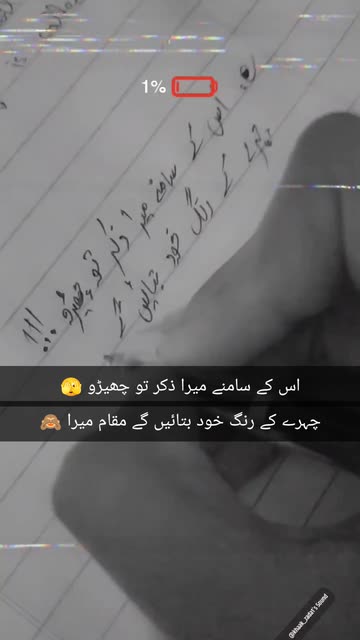 1%
اس کے سامنے میرا ذکر تو چھیڑو...!!!
چہرے کے رنگ خود بتائیں گے
اس کے سامنے میرا ذکر تو چھیڑو 🫣
چہرے کے رنگ خود بتائیں گے مقام میرا 🙈